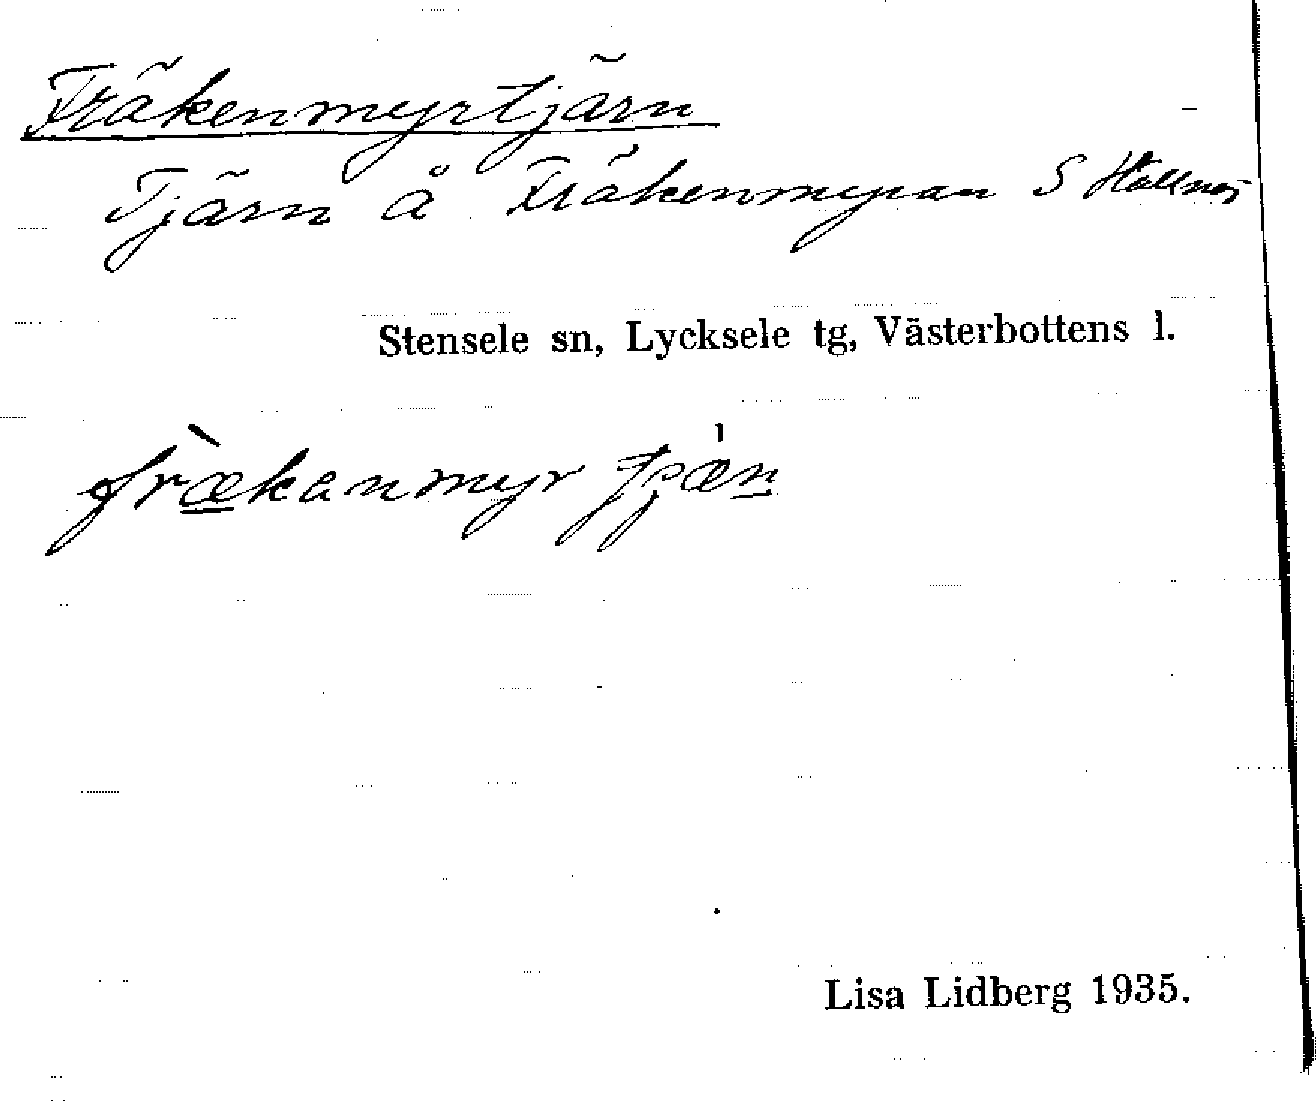 Fräkenmyrtjärn
Tjärn å Fräkenmyran S Hällnäs
Stensele sn, Lycksele tg, Västerbottens l.
frækanmyr
Lisa Lidberg 1935.